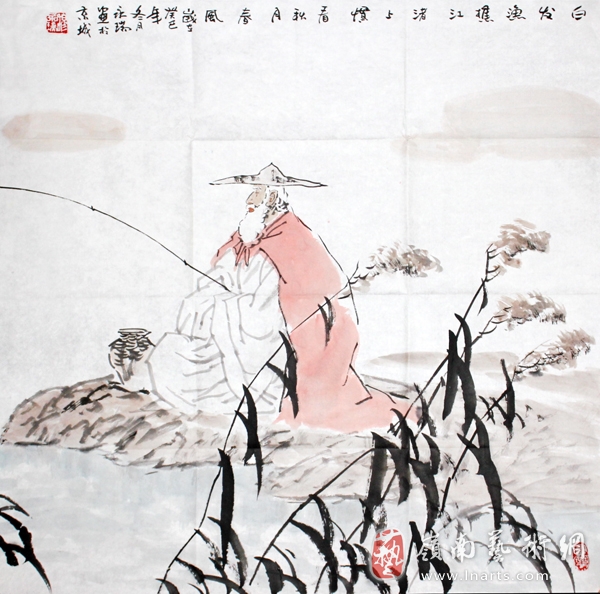 白发漁樵江渚上慣看秋月春風
歲在
癸巳
年
冬月
畫於
京城
嶺南藝術網
www.lnarts.com